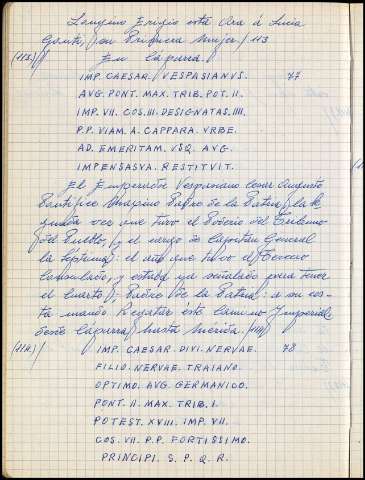 Longino Erigio esta Ara á Lucia
Gante, su Primera Mujer. / 113
(113)// En Caparra.
IMP. CAESAR. VESPASIANVS. 77
AVG. PONT. MAX. TRIB. POT. II.
IMP. VII. COS. III. DESIGNATAS. IIII.
P.P. VIAM. A. CAPPARA. VRBE.
AD. EMERITAM. VSQ. AVG.
IMPENSASVA. RESTITVIT.
El Emperador Vespasiano Cesar Augusto
Pontifice Maximo Padre de la Patria, la
vez que tuvo el Poderio del Tribuno
del Pueblo, y el cargo de Capitan General
la septima: el año que tuvo el Tercero
Consulado, y estaba ya señalado para tener
el cuarto; Padre de la Patria: a su cos-
ta mandó Reparar éste camino Imperial
desde Caparra hasta Merida. (114)
(114)/ IMP. CAESAR. DIVI. NERVAE. 78
FILIO. NERVAE. TRAIANO.
OPTIMO. AVG. GERMANICO.
PONT. II. MAX. TRIB. I.
POTEST. XVIII. IMP. VII.
COS. VII. P.P. FORTISSIMO.
PRINCIPI. S. P. Q. R.